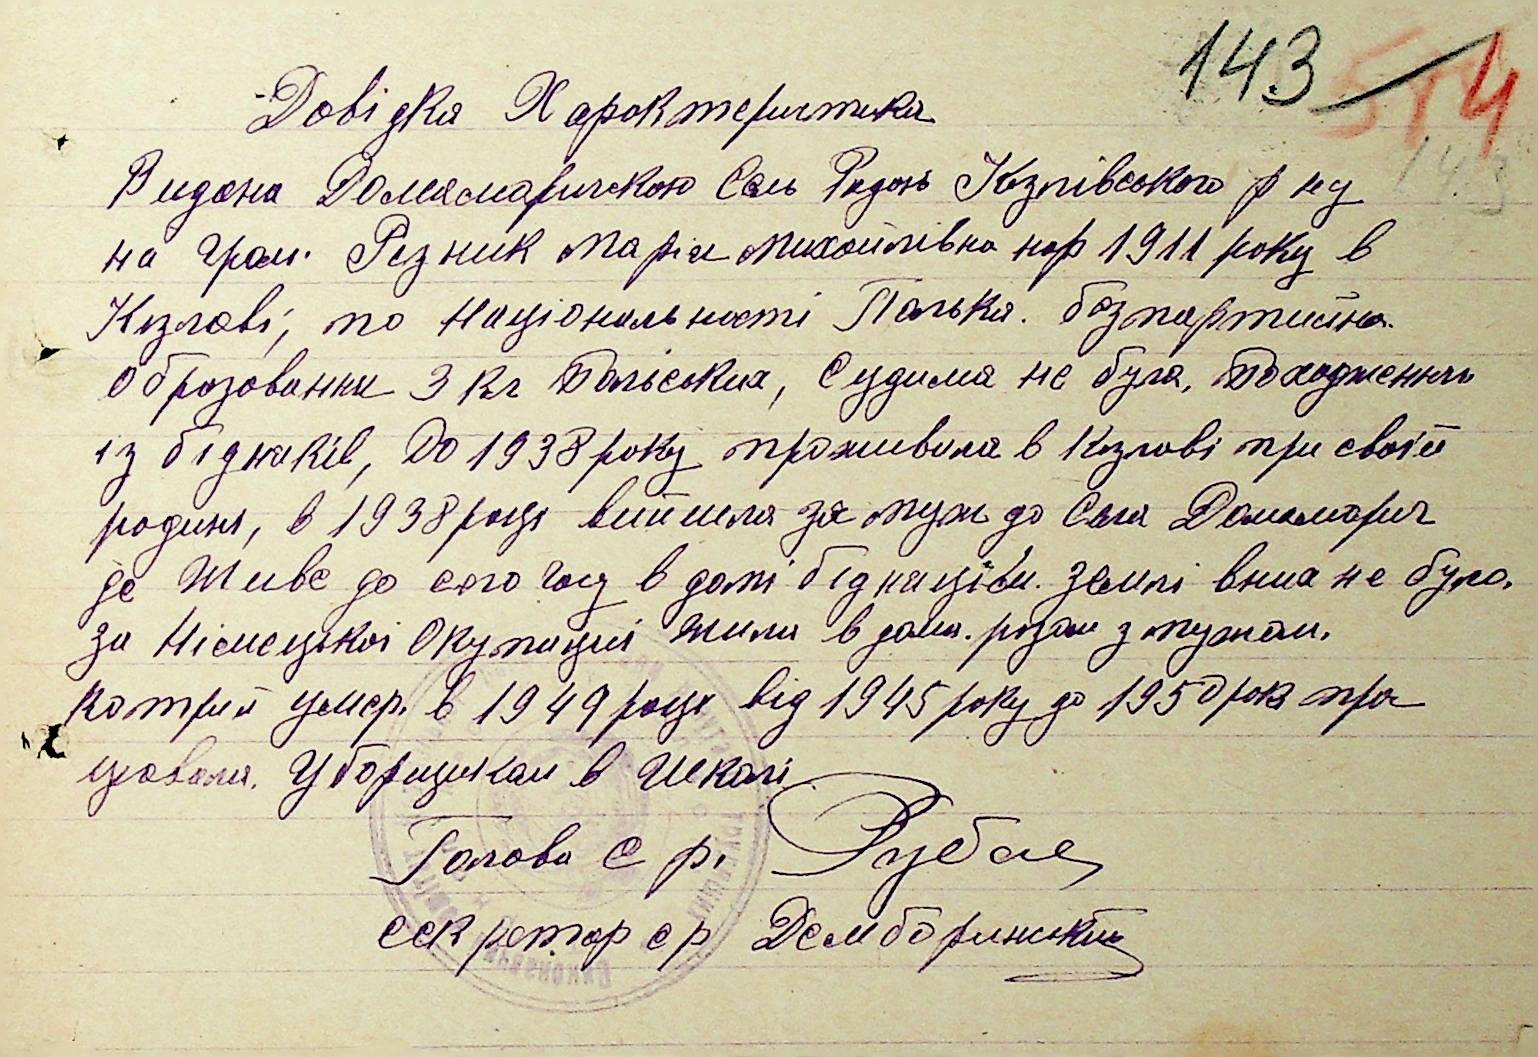 143 514
143
Довідка Характеристика
Видана Домамаричскою Сель Радою Козлівського р ну
на грам. Резник Марія Михайлівна нар 1911 року в
Козлові, по Національності Полька. безпартийна.
Образования 3 кл Польских, Судима не була, Походженням
із бідняків, До 1938 року проживала в Козлові при своїй
родині, в 1938 році вийшла за муж до Села Домамарич
де Живе до сего часу в домі бідняцтви. землі вниа не було.
за Німецької Окупациї жила в дома. разам з мужам.
катрий умер. в 1949 році від 1945 року до 1950 рока пра
цювала. Уборщикам в Школі
Голова с р. Рубас
секретар с р Демборинский